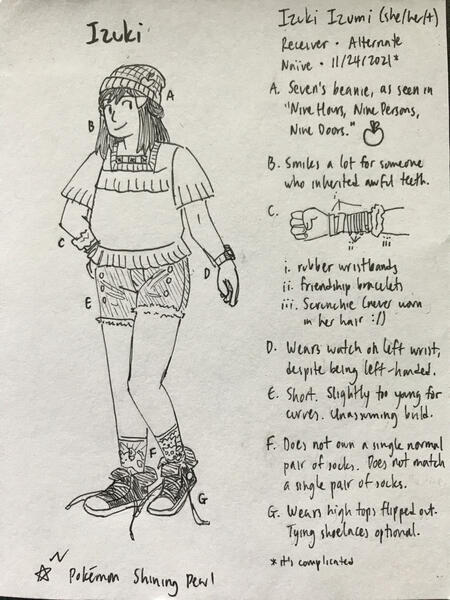 Izuki
A
B
C
D
E
F
G
☆ N Pokémon Shining Pearl
Izuki Izumi (she/her/+)
Receiver • Alternate
Naïve • 11/24/2021*
A. Seven's beanie, as seen in
"Nine Hours, Nine Persons,
Nine Doors."
B. Smiles a lot for someone
who inherited awful teeth.
C.
i
ii
iii
i. rubber wristbands
ii. friendship bracelets
iii. Scrunchie (never worn
in her hair :/)
D. Wears watch on left wrist,
despite being left-handed.
E. Short. Slightly too young for
curves. Unassuming build.
F. Does not own a single normal
pair of socks. Does not match
a single pair of socks.
G. Wears high tops flipped out.
Tying shoelaces optional.
*it's complicated